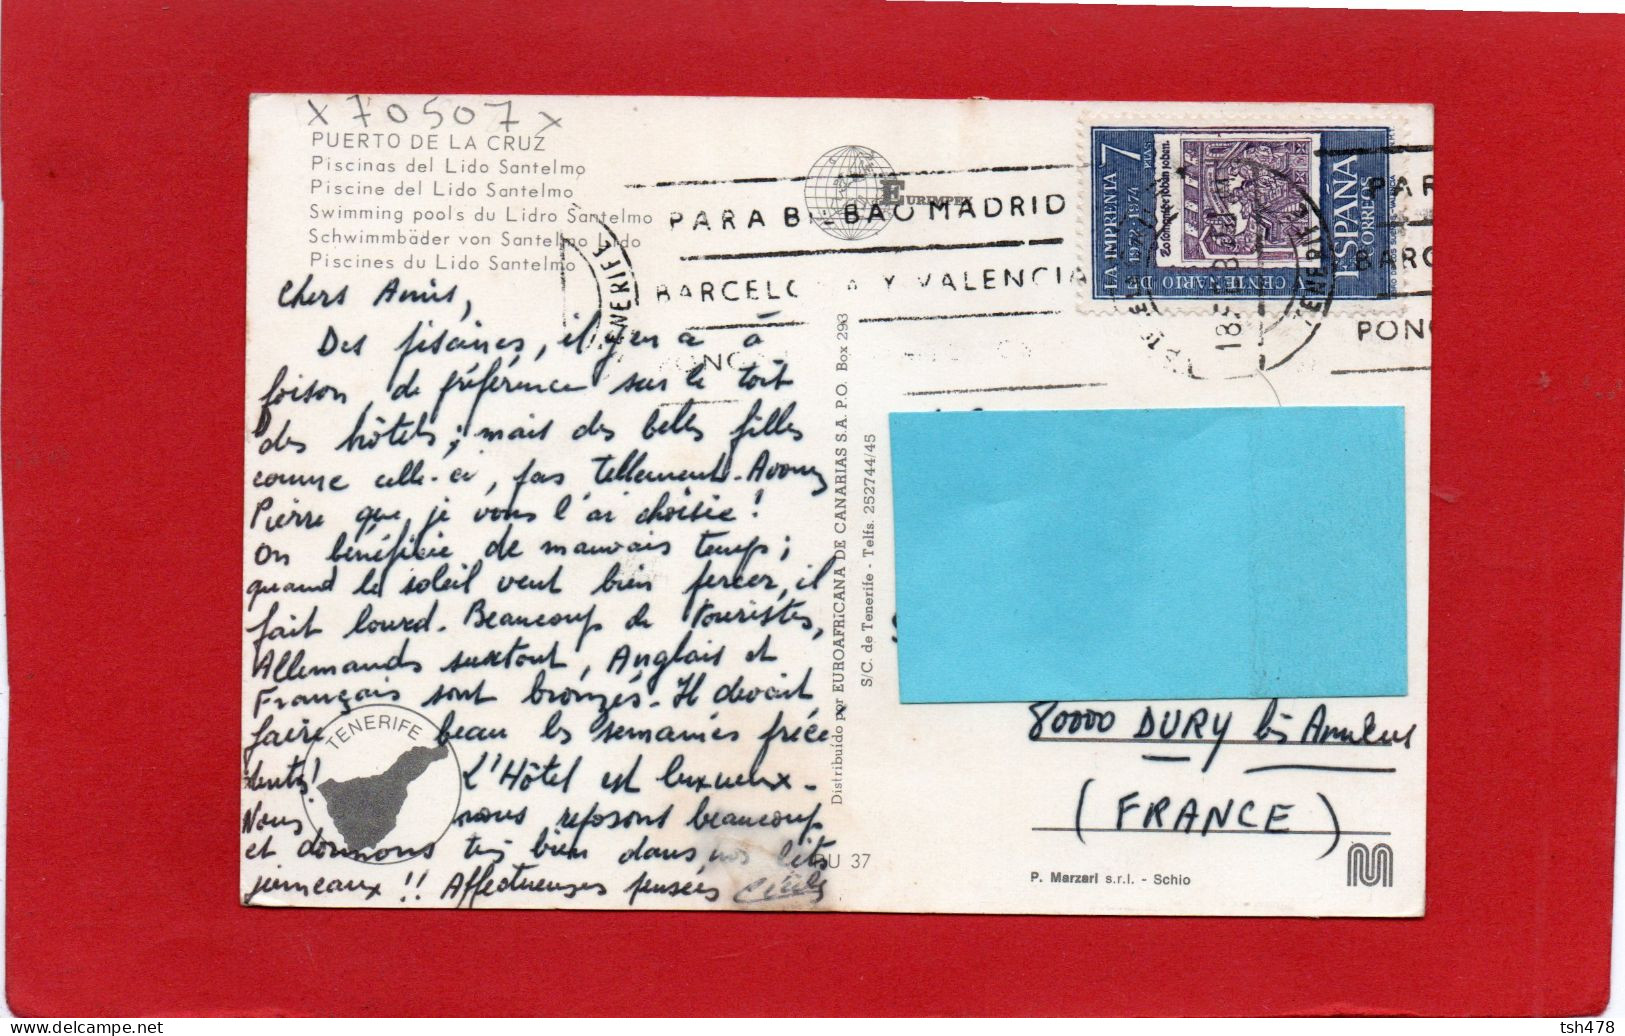 x 70507 x
PUERTO DE LA CRUZ
Piscinas del Lido Santelmo
Piscine del Lido Santelmo
Swimming pools du Lidro Santelmo
Schwimmbäder von Santelmo Lido
Piscines du Lido Santelmo
Chers Amis,
Des piscines, il y en a à
foison, de préférence sur le toit
des hôtels; mais des belles filles
comme celle-ci, pas tellement. Avouez
Pierre que je vous l'ai choisie!
On bénéficie de mauvais temps;
quand le soleil veut bien percer, il
fait lourd. Beaucoup de touristes,
Allemands surtout, Anglais et
Français sont bronzés. Il devait
faire beau les semaines précé
dentes! L'Hôtel est luxueux.
Nous nous reposons beaucoup
et dormons très bien dans nos lits
jumeaux!! Affectueuses pensées
TENERIFE
EURIMPEX
PARA BILBAO MADRID
BARCELO A Y VALENCIA
PONG
TENERIFE
LA IMPRENTA 7 PTAS
V CENTENARIO DE 1972-1974
ESPAÑA
CORREOS
TENERIFE
18
PAR
BARC
PONG
Distribuído por EUROAFRICANA DE CANARIAS S.A. P.O. Box 293
S/C. de Tenerife - Telfs. 252744/45
80000 DURY lès Amiens
(FRANCE)
P. Marzari s.r.l. - Schio
DU 37
tsh478